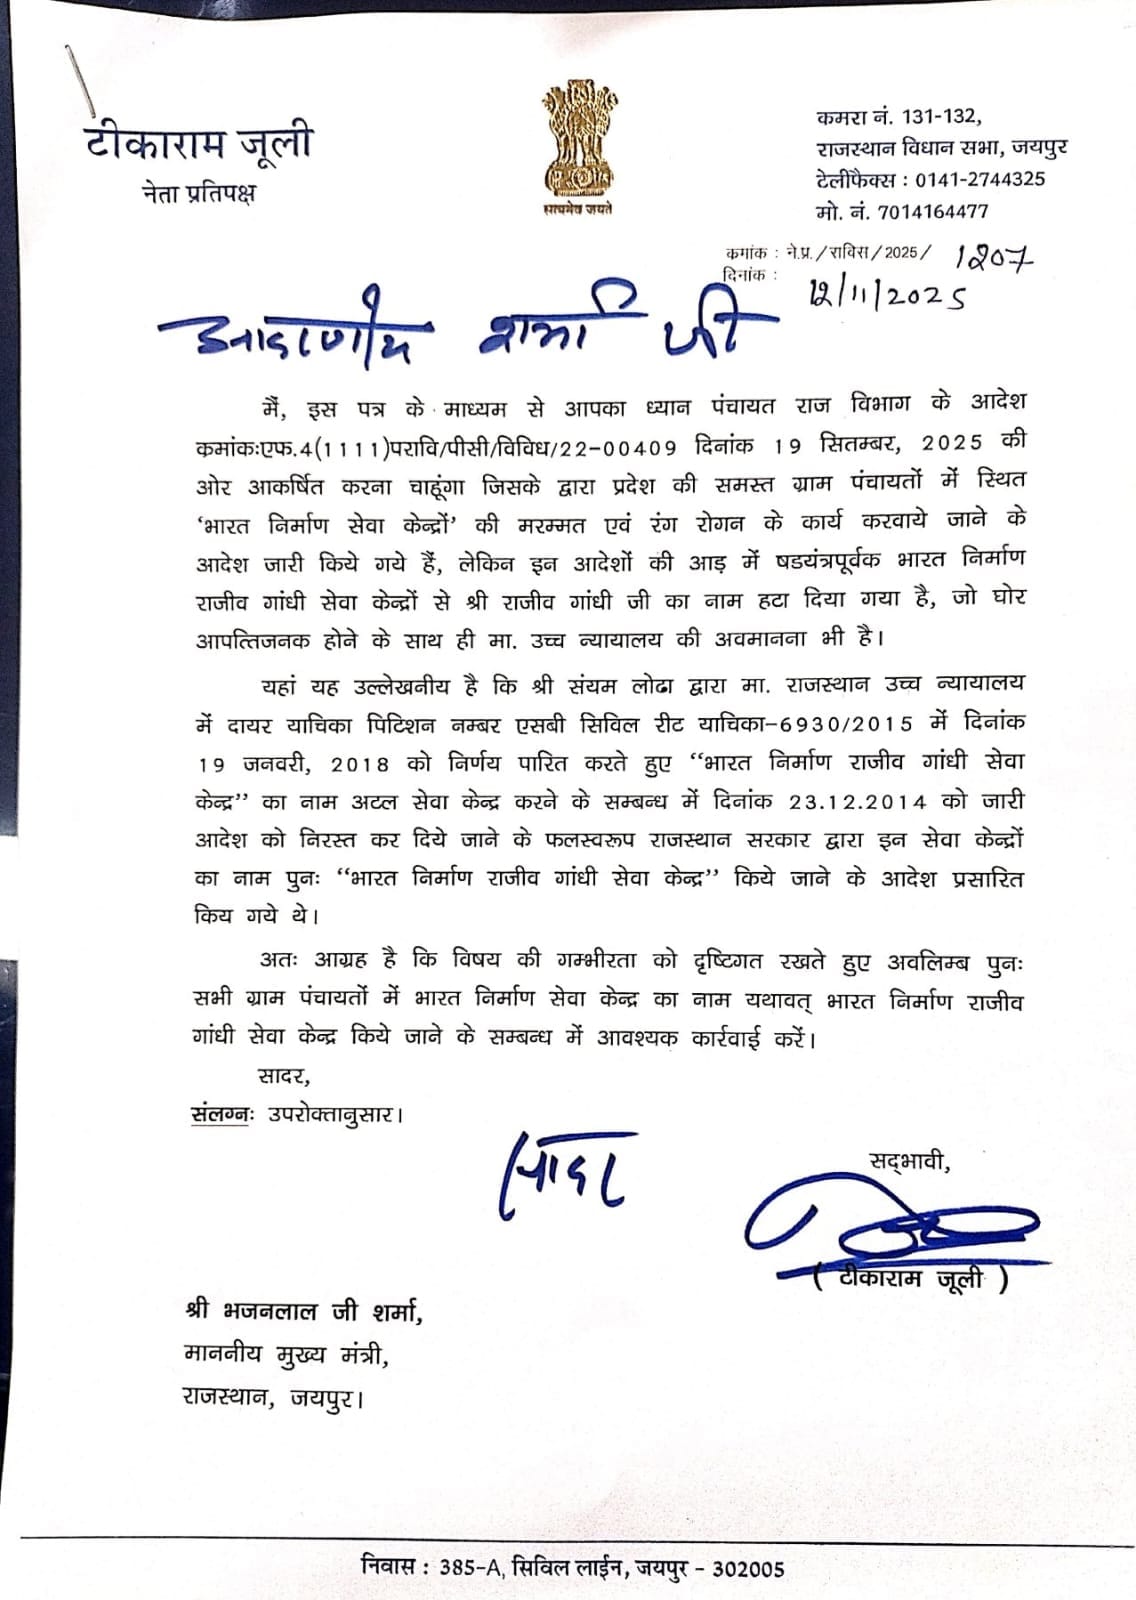 टीकाराम जूली
नेता प्रतिपक्ष
सत्यमेव जयते
कमरा नं. 131-132,
राजस्थान विधान सभा, जयपुर
टेलीफैक्स : 0141-2744325
मो. नं. 7014164477
क्रमांक : ने.प्र./राविस/2025/ 1207
दिनांक : 12/11/2025
आदरणीय शर्मा जी
मैं, इस पत्र के माध्यम से आपका ध्यान पंचायत राज विभाग के आदेश
कमांकःएफ.4(1111)परावि/पीसी/विविध/22-00409 दिनांक 19 सितम्बर, 2025 की
ओर आकर्षित करना चाहूंगा जिसके द्वारा प्रदेश की समस्त ग्राम पंचायतों में स्थित
‘भारत निर्माण सेवा केन्द्रों’ की मरम्मत एवं रंग रोगन के कार्य करवाये जाने के
आदेश जारी किये गये हैं, लेकिन इन आदेशों की आड़ में षडयंत्रपूर्वक भारत निर्माण
राजीव गांधी सेवा केन्द्रों से श्री राजीव गांधी जी का नाम हटा दिया गया है, जो घोर
आपत्तिजनक होने के साथ ही मा. उच्च न्यायालय की अवमानना भी है।
यहां यह उल्लेखनीय है कि श्री संयम लोढा द्वारा मा. राजस्थान उच्च न्यायालय
में दायर याचिका पिटिशन नम्बर एसबी सिविल रीट याचिका-6930/2015 में दिनांक
19 जनवरी, 2018 को निर्णय पारित करते हुए “भारत निर्माण राजीव गांधी सेवा
केन्द्र” का नाम अटल सेवा केन्द्र करने के सम्बन्ध में दिनांक 23.12.2014 को जारी
आदेश को निरस्त कर दिये जाने के फलस्वरूप राजस्थान सरकार द्वारा इन सेवा केन्द्रों
का नाम पुनः “भारत निर्माण राजीव गांधी सेवा केन्द्र” किये जाने के आदेश प्रसारित
किय गये थे।
अतः आग्रह है कि विषय की गम्भीरता को दृष्टिगत रखते हुए अवलिम्ब पुनः
सभी ग्राम पंचायतों में भारत निर्माण सेवा केन्द्र का नाम यथावत् भारत निर्माण राजीव
गांधी सेवा केन्द्र किये जाने के सम्बन्ध में आवश्यक कार्रवाई करें।
सादर,
संलग्नः उपरोक्तानुसार।
सादर
सद्भावी,
( टीकाराम जूली )
श्री भजनलाल जी शर्मा,
माननीय मुख्य मंत्री,
राजस्थान, जयपुर।
निवास : 385-A, सिविल लाईन, जयपुर - 302005